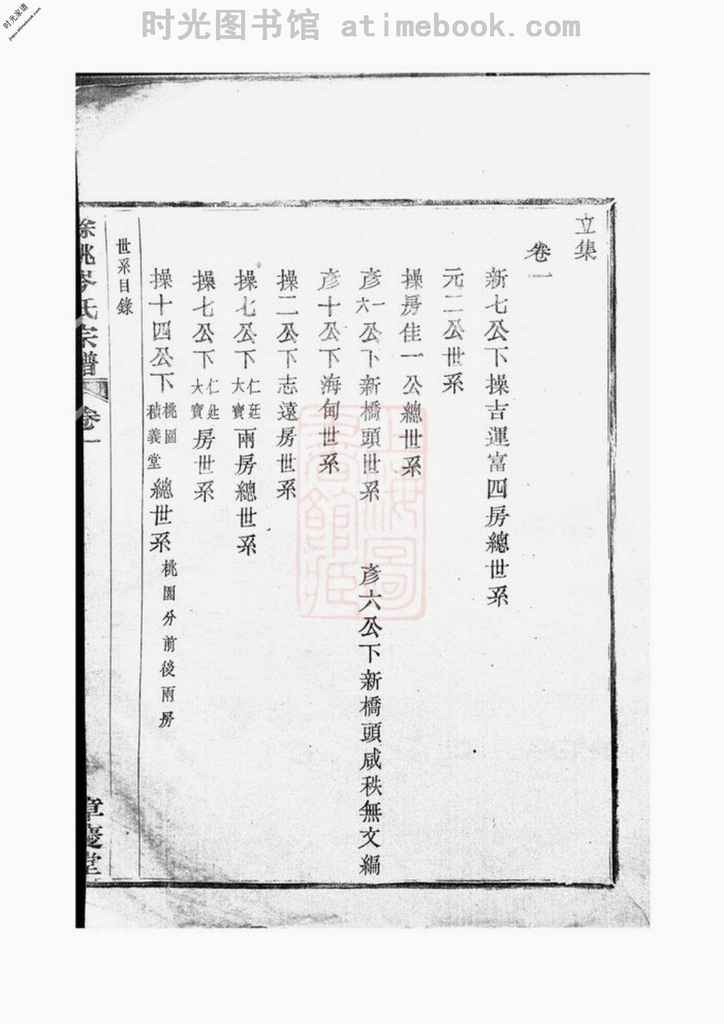 时光图书馆 atimebook.com
时光家谱
立集
卷一
新七公下操吉運富四房總世系
元二公世系
操房佳一公總世系
彥六一公下新橋頭世系 彥六公下新橋頭咸秩無文編
彥十公下海甸世系
操二公下志遠房世系
操七公下仁廷大寶兩房總世系
操七公下仁廷大寶房世系
操十四公下桃園積義堂總世系桃園分前後兩房
世系目錄
餘姚岑氏宗譜 卷一 章慶堂